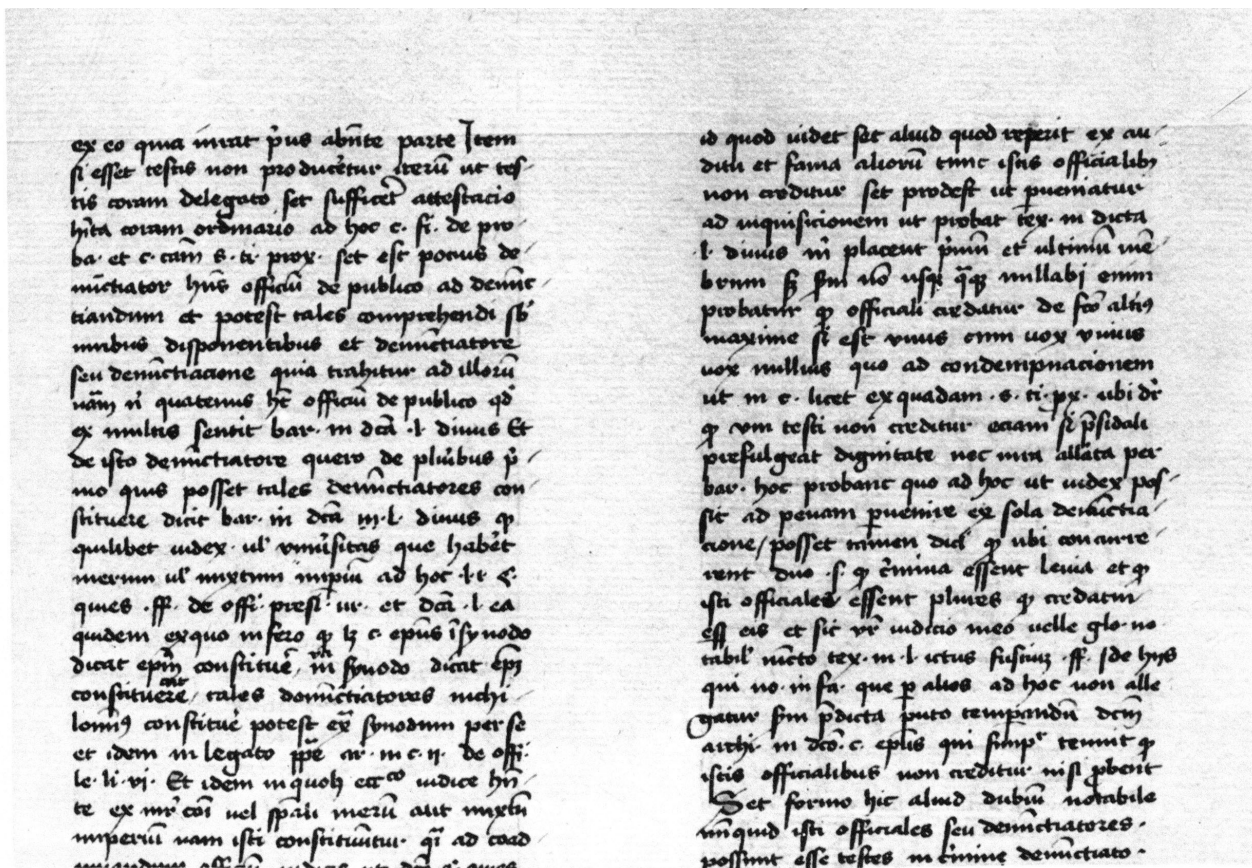 ex eo quia iurat p̄us abn̄te parte Item
si esset testis non producēt̄ur iterū ut tes-
tis coram delegato set sufficeēt attestacio
hīta coram ordinario ad hoc c. fi. de pro
ba. et c. cam̄ s. ti. prox. set est pocius de-
nūctiator hn̄s officiū de publico ad denūc-
tiandum et potest tales comprehendi sb̄
disponentibus et denūctiatore
seu denūctiacione quia trahitur ad illorū
nām̄ n̄ quatenus ht̄ officiū de publico qd̄
ex multis sentit bar. in dcā .l. diuus Et
de isto denūctiatore quero de plūibus p̄-
mo quis posset tales denūctiatores con-
stituere dicit bar. in dcā l. diuus qp
quilibet iudex ul̄ uniūsitas que habēt
merum ul̄ mixtum imp̄iū ad hoc .l.
quies .ff. de offi. presi. et dcā .l. ea
quidem ex quo infero qp lz c. ep̄us ī synodo
dicat ep̄m constituē, in synodo dicat ep̄i
constituere, tales denūctiatores nichi-
lomīꝯ constitūe potest ex̄ synodum per se
et idem in legato pp̄e ar. in c. ii. de offi.
le. li. vi. Et idem in quolz iudice hn̄-
te ex iur̄ cōi uel sp̄ali merū aut mixtū
imperiū nam isti constituūtur qī ad coad
officium iudicis
id quod uidet set aliud quod reperit ex au-
ditu et fama aliorū tunc istis officialibꝫ
non creditur set prodest ut p̄ueniatur
ad inquisicionem ut probat tex. in dicta
.l. diuus m̄ placent p̄mū et ultimū mē-
brum sꝫ nō usqꝫ q̄qꝫ nullabi enim
probatur qp officiali credatur de fcō altiꝯ
maxime si est unus enim uox unius
uox nullius quo ad condempnacionem
ut in c. licet ex quadam . s. ti. px. ubi dr̄
qp uni testi non creditur eciam si p̄sidali
prefulgeat dignitate nec iura allāta per
bar. hoc probant quo ad hoc ut iudex pos-
sit ad penam p̄uenire ex sola denūctia-
cione, posset tamen dici qp ubi concurre-
rent duo .s. qp cīmina essent leuia et qp
isti officiales essent plures qp credatur
eis et sic vr̄ iudicio meo uelle glo. no-
tabil̄ iūcto tex. in .l. ictus fustiū .ff. de hiis
qui no. infa. que p̄ alios ad hoc non alle
gatur sm̄ p̄dicta puto temp̄andū dcm̄
archi. in dcō. c. ep̄us qui simp̄r tenuit qp
istis officialibus non creditur nisi p̄bent
Set formo hic aliud dubiū notabile
nūnquid isti officiales seu denūctiatores.
possunt esse testes in cīmine denūctiato.